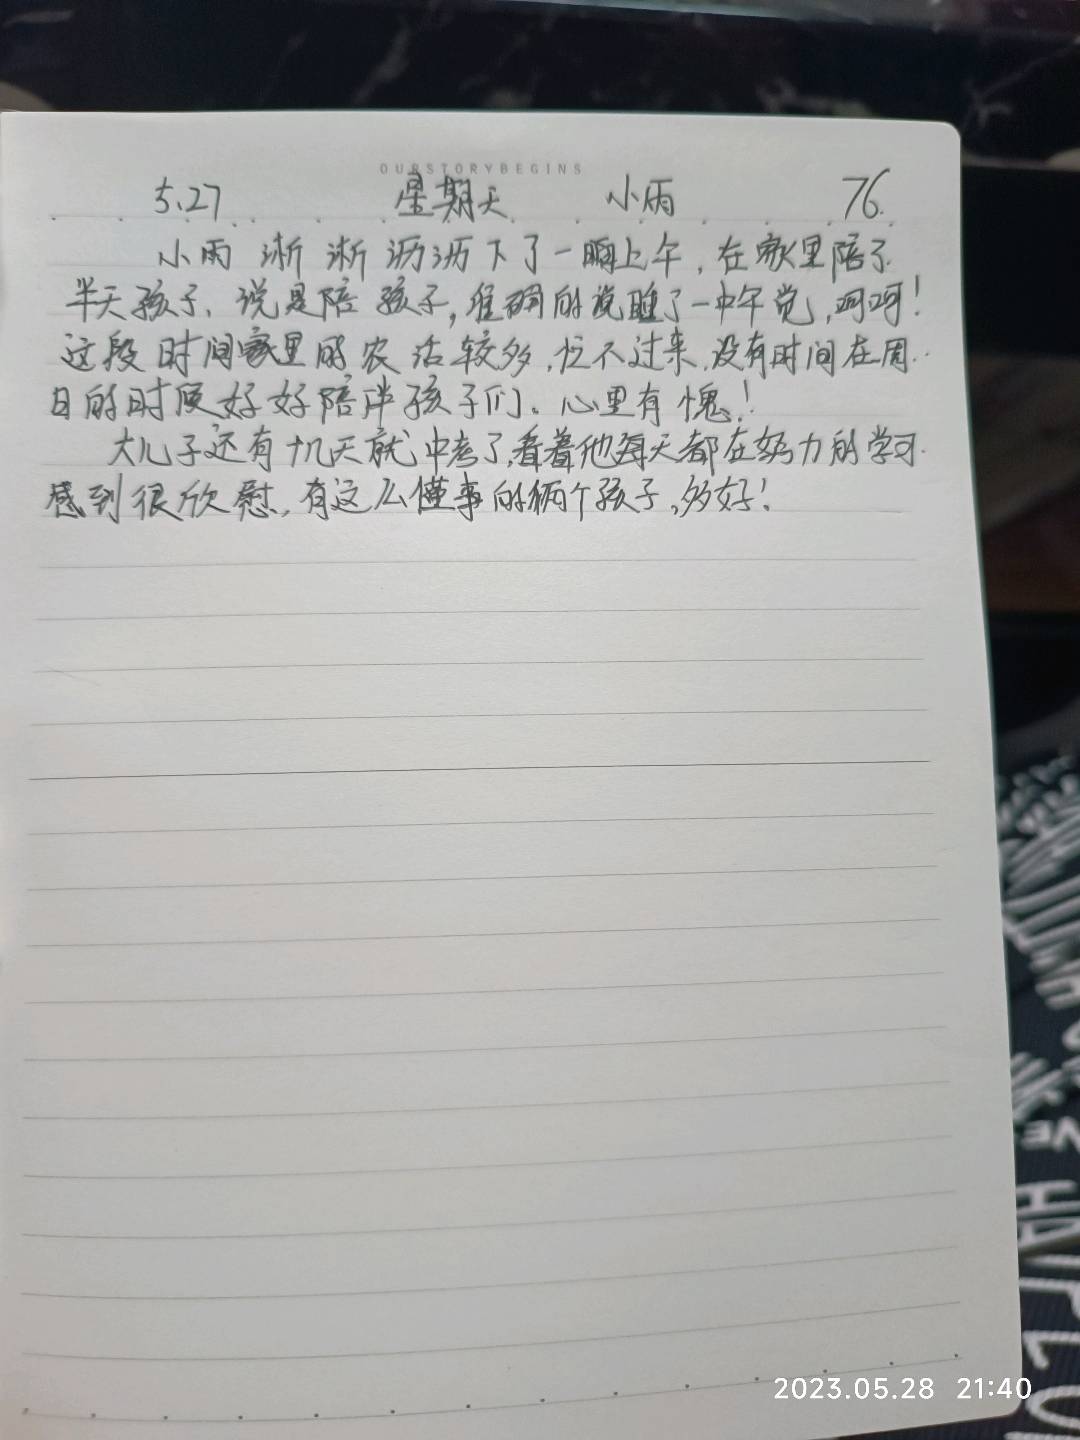 OURSTORYBEGINS
5.27 星期天 小雨 76.
小雨淅淅沥沥下了一晌上午，在家里陪了
半天孩子，说是陪孩子，准确的说睡了一中午觉，呵呵！
这段时间家里的农活较多，忙不过来，没有时间在周
日的时候好好陪伴孩子们。心里有愧！
大儿子还有十几天就中考了，看着他每天都在努力的学习.
感到很欣慰，有这么懂事的俩个孩子，多好！
2023.05.28 21:40